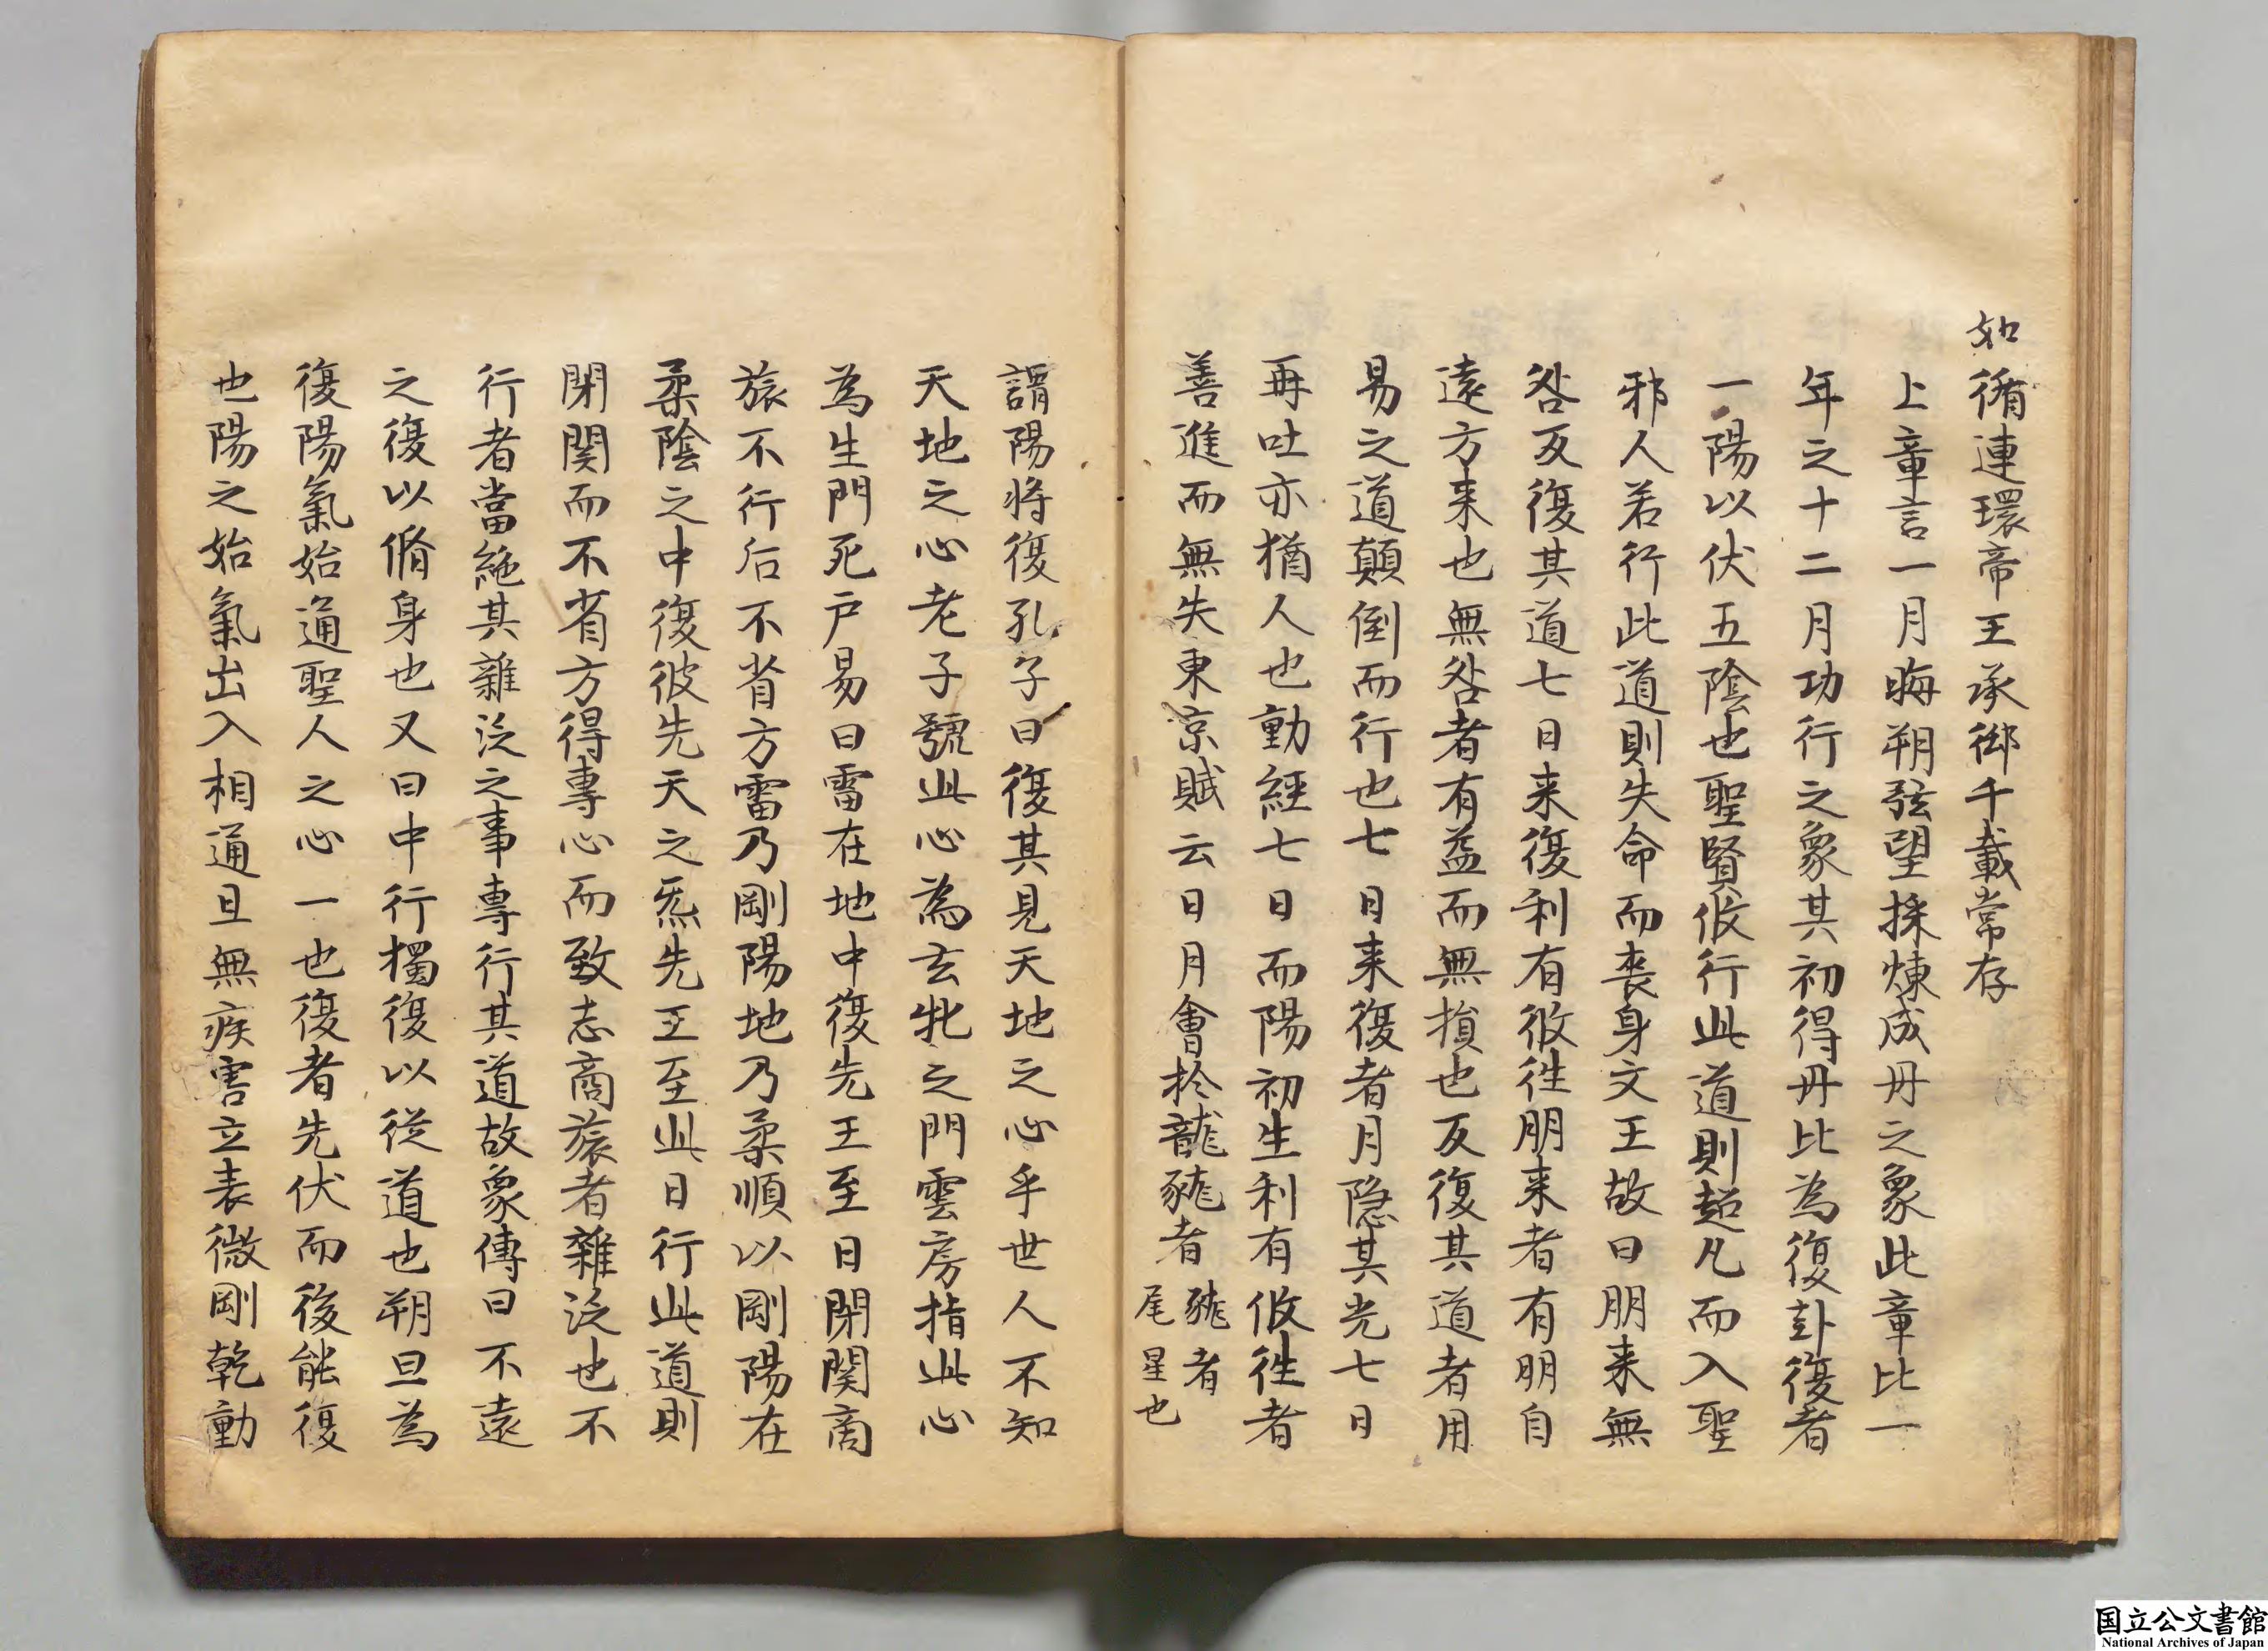 如循連環帝王承御千載常存
上章言一月晦朔弦望採煉成丹之象此章比一
年之十二月功行之象其初得丹比為復卦復者
一陽以伏五陰也聖賢攸行此道則超凡而入聖
邪人若行此道則失命而喪身文王故曰朋来無
咎反復其道七日来復利有攸徃朋来者有朋自
遠方来也無咎者有益而無損也反復其道者用
易之道顛倒而行也七日来復者月隐其光七日
再吐亦猶人也動經七日而陽初生利有攸徃者
善進而無失東京賦云日月會於龍䝐者䝐者尾星也
謂陽将復孔子曰復其見天地之心乎世人不知
天地之心老子號此心為玄牝之門雲房指此心
為生門死户易曰雷在地中復先王至日閉関商
旅不行后不省方雷乃剛陽地乃柔順以剛陽在
柔陰之中復彼先天之炁先王至此日行此道則
閉関而不省方得專心而致志商旅者雜泛也不
行者當絶其雜泛之事專行其道故象傳曰不遠
之復以脩身也又曰中行獨復以従道也朔旦為
復陽氣始通聖人之心一也復者先伏而後能復
也陽之始氣出入相通且無疾害立表微剛乾動
国立公文書館
National Archives of Japan